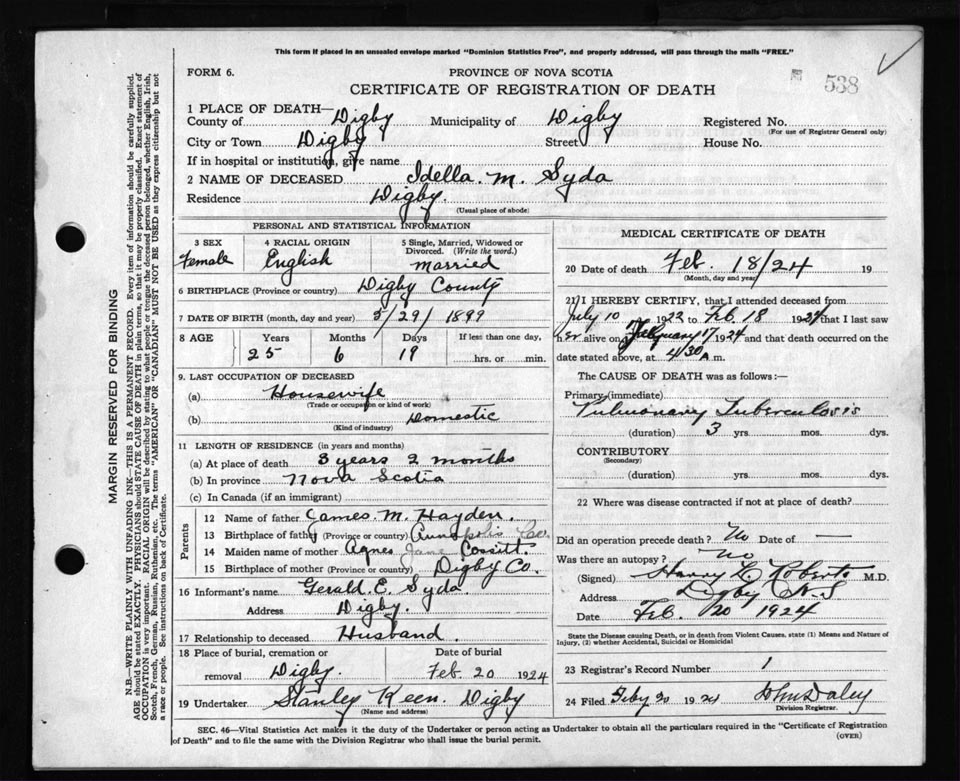 This form if placed in an unsealed envelope marked "Dominion Statistics Free", and properly addressed, will pass through the mails "FREE."
FORM 6.
PROVINCE OF NOVA SCOTIA
538
CERTIFICATE OF REGISTRATION OF DEATH
1 PLACE OF DEATH—
County of Digby Municipality of Digby Registered No.
(For use of Registrar General only)
City or Town Digby Street House No.
If in hospital or institution, give name
2 NAME OF DECEASED Idella. M. Syda
Residence Digby.
(Usual place of abode)
PERSONAL AND STATISTICAL INFORMATION
3 SEX 4 RACIAL ORIGIN 5 Single, Married, Widowed or Divorced. (Write the word.)
Female English married
6 BIRTHPLACE (Province or country) Digby County
7 DATE OF BIRTH (month, day and year) 5/29/1899
8 AGE Years Months Days If less than one day,
25 6 19 hrs. or min.
9. LAST OCCUPATION OF DECEASED
(a) Housewife
(Trade or occupation or kind of work)
(b) Domestic
(Kind of industry)
11 LENGTH OF RESIDENCE (in years and months)
(a) At place of death 3 years 2 months
(b) In province Nova Scotia
(c) In Canada (if an immigrant)
Parents
12 Name of father James. M. Hayden.
13 Birthplace of father (Province or country) Annapolis Co.
14 Maiden name of mother Agnes Jane Cossitt.
15 Birthplace of mother (Province or country) Digby Co.
16 Informant's name Gerald E. Syda
Address Digby.
17 Relationship to deceased Husband.
18 Place of burial, cremation or removal Digby
Date of burial Feb. 20 1924
19 Undertaker Stanley Keen Digby
(Name and address)
MEDICAL CERTIFICATE OF DEATH
20 Date of death Feb. 18/24 19
(Month, day and year)
21 I HEREBY CERTIFY, that I attended deceased from
July 10 1922 to Feb 18 1924 that I last saw
her alive on February 17 1924 and that death occurred on the
date stated above, at 4/30 A.m.
The CAUSE OF DEATH was as follows:—
Primary (immediate)
Pulmonary Tuberculosis
(duration) 3 yrs. mos. dys.
CONTRIBUTORY
(Secondary)
(duration) yrs. mos. dys.
22 Where was disease contracted if not at place of death?
Did an operation precede death? No Date of —
Was there an autopsy? No
(Signed) Harry L. Roberts M.D.
Address Digby N.S
Date Feb 20 1924
State the Disease causing Death, or in death from Violent Causes, state (1) Means and Nature of Injury, (2) whether Accidental, Suicidal or Homicidal
23 Registrar's Record Number 1
24 Filed Feby 20 1924 John Daley
Division Registrar.
SEC. 46—Vital Statistics Act makes it the duty of the Undertaker or person acting as Undertaker to obtain all the particulars required in the "Certificate of Registration
of Death" and to file the same with the Division Registrar who shall issue the burial permit.
(OVER)
MARGIN RESERVED FOR BINDING
N.B.—WRITE PLAINLY WITH UNFADING INK—THIS IS A PERMANENT RECORD. Every item of information should be carefully supplied.
AGE should be stated EXACTLY. PHYSICIANS should STATE CAUSE OF DEATH in plain terms, so that it may be properly classified. Exact statement of
OCCUPATION is very important. RACIAL ORIGIN will be described by stating to what people or tongue the deceased person belonged, whether English, Irish,
Scotch, French, German, Russian, Ruthenian, etc. The terms "AMERICAN" OR "CANADIAN" MUST NOT BE USED as they express citizenship but not
a race or people. See instructions on back of Certificate.